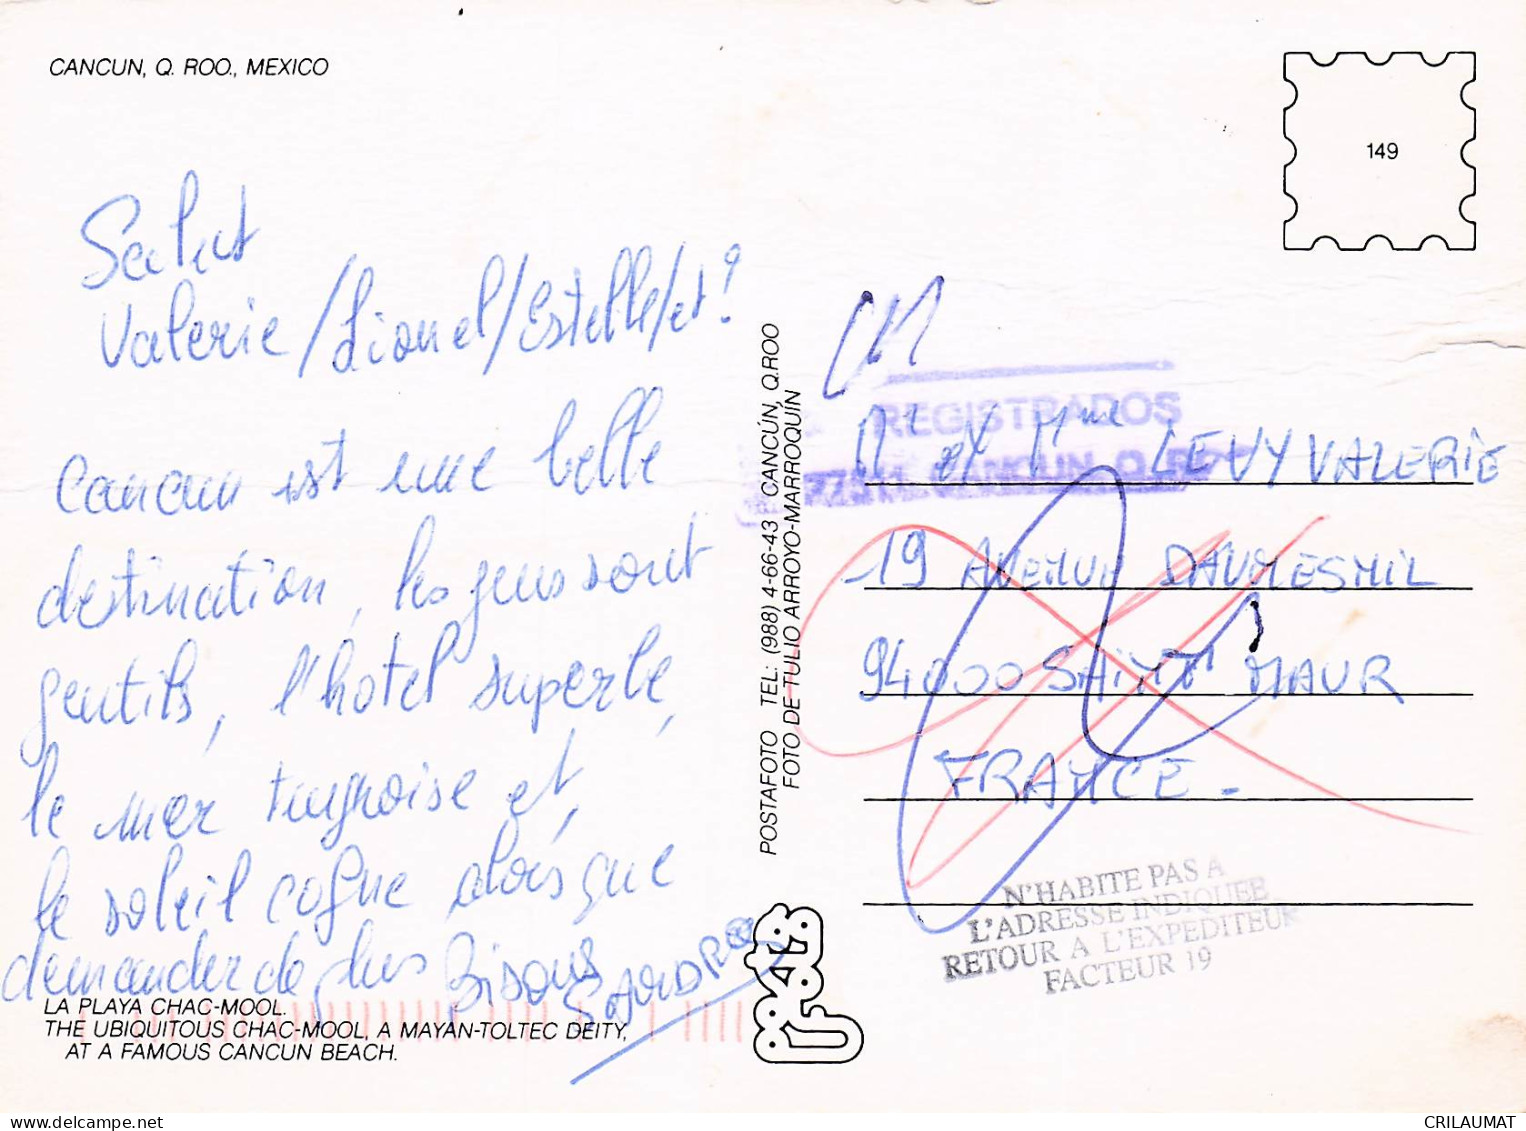 CANCUN, Q. ROO., MEXICO
149
Salut
Valerie/Lionel/Estelle/et?
Cancun est une belle
destination, les gens sont
gentils, l'hotel superbe,
le mer turquoise et,
le soleil cogne alors que
demander de plus Bisous
SANDRA
LA PLAYA CHAC-MOOL.
THE UBIQUITOUS CHAC-MOOL, A MAYAN-TOLTEC DEITY,
AT A FAMOUS CANCUN BEACH.
POSTAFOTO TEL.: (988) 4-66-43 CANCÚN, Q.ROO
FOTO DE TULIO ARROYO-MARROQUÍN
REGISTRADOS
CANCUN, Q.
Mr et Mme LEVY VALERIE
19 AVENUE DAUMESNIL
94000 SAINT MAUR
FRANCE -
N'HABITE PAS A
L'ADRESSE INDIQUEE
RETOUR A L'EXPEDITEUR
FACTEUR 19
CRILAUMAT